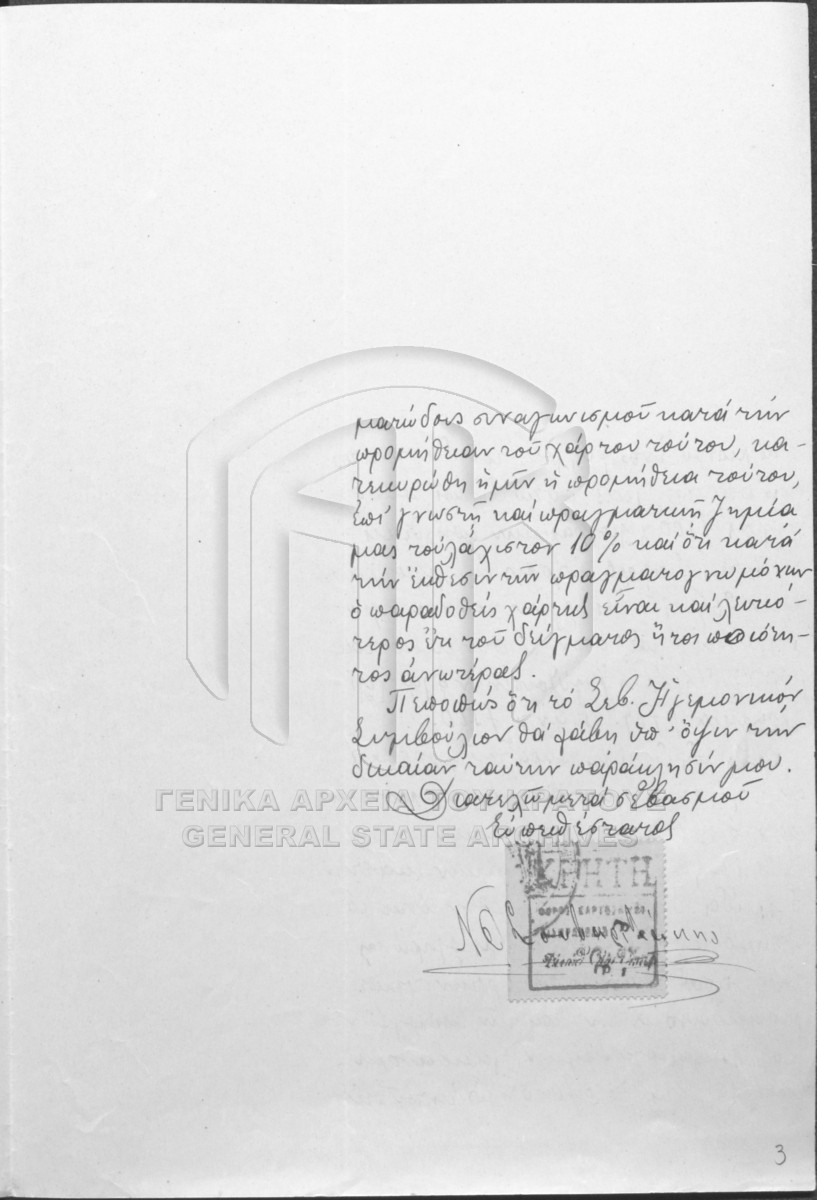 ματώδους συναγωνισμοῦ κατά τήν
προμήθειαν τοῦ χάρτου τούτου, κα-
τεκυρώθη ἡμῖν ἡ προμήθεια τούτου,
ἐπί γνωστῇ καί πραγματικῇ ζημίᾳ
μας τοὐλάχιστον 10% καί ὅτι κατά
τήν ἔκθεσιν τῶν πραγματογνωμόνων
ὁ παραδοθείς χάρτης εἶναι καί λευκό-
τερος ἐκ τοῦ δείγματος ἤτοι ποιότη-
τος ἀνωτέρας.
Πεποιθώς ὅτι τό Σεβ. Ἡγεμονικόν
Συμβούλιον θά λάβῃ ὑπ' ὄψιν τήν
δικαίαν ταύτην παράκλησίν μου.
Διατελῶ μετά σεβασμοῦ
Εὐπειθέστατος
ΓΕΝΙΚΑ ΑΡΧΕΙΑ ΤΟΥ ΚΡΑΤΟΥΣ
GENERAL STATE ARCHIVES
ΚΡΗΤΗ
3